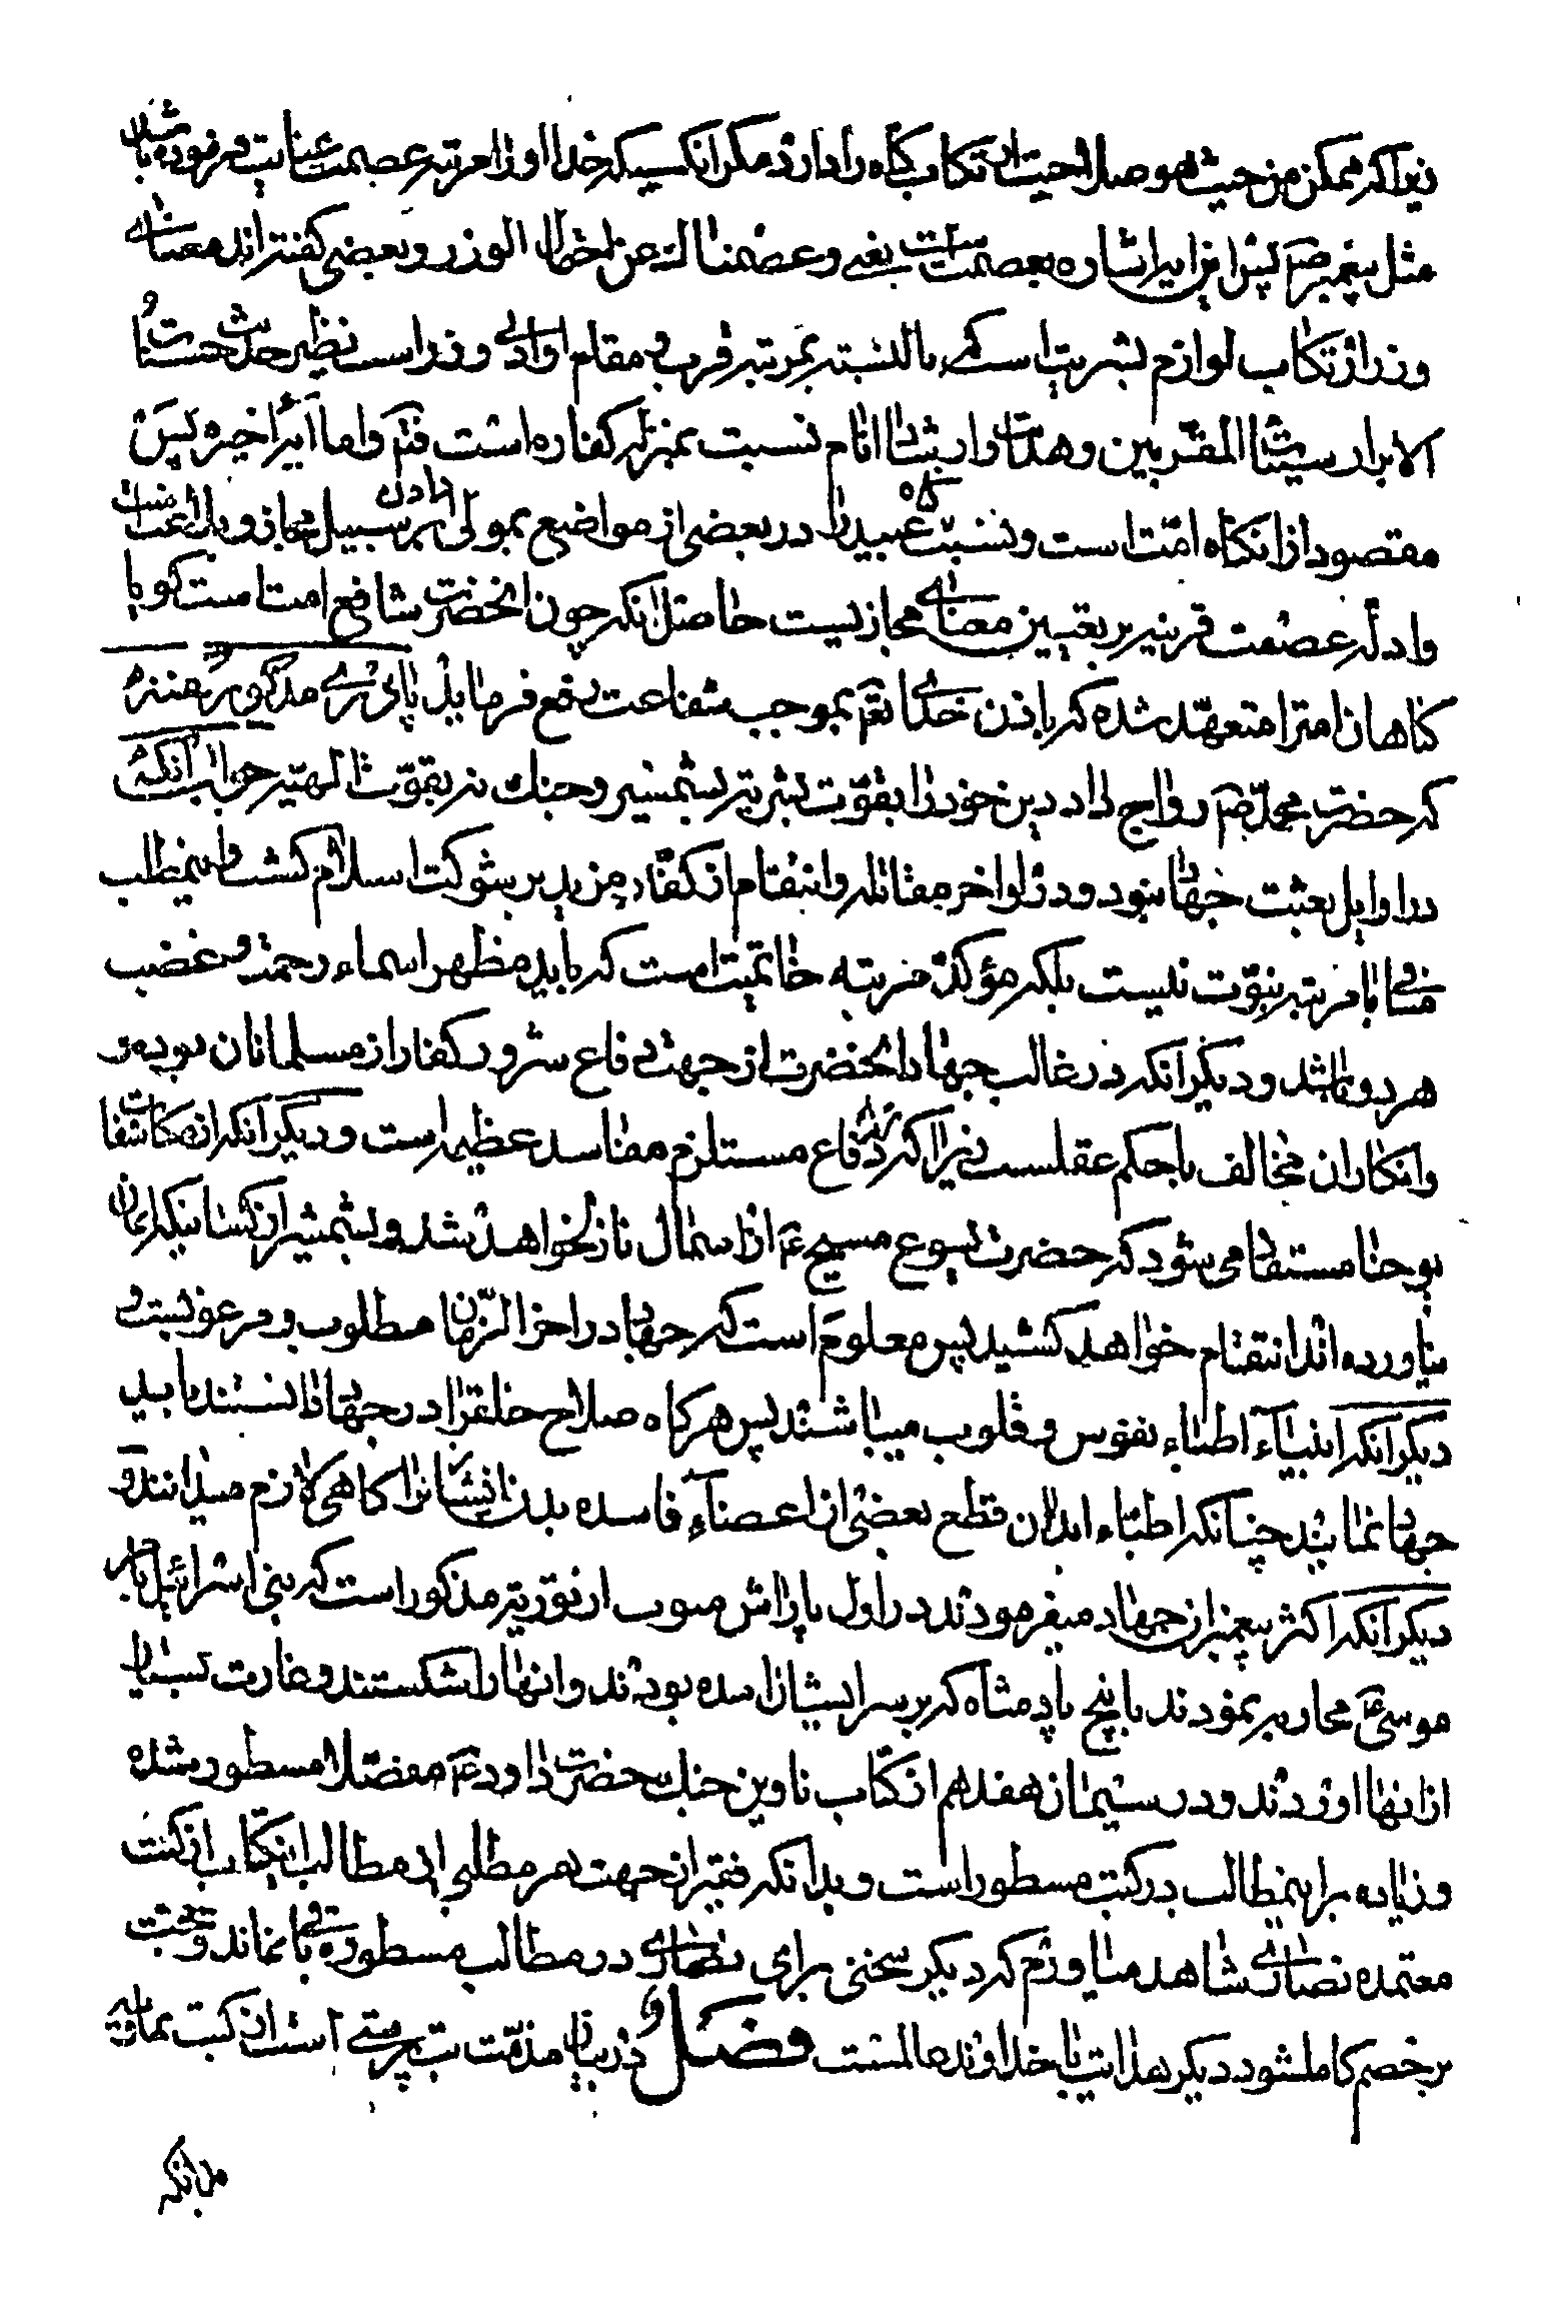 زیرا که ممکن من حیث هو صلاحیت ارتکاب گناه را دارد مگر انکسیکه خدا او را مرتبه عصمت عنایت فرموده باشد
مثل پیغمبر ص پس این ایه اشاره بعصمت است یعنی وعصمناک عن احتمال الوزر و بعضی گفته اند معنای
وزر ارتکاب لوازم بشریت است که بالنسبته بمرتبه قرب و مقام او ادنی وزر است نظیر حدیث حسنات
الابرار سیئات المقربین و هدایت و ارشاد انام نسبت بمنزله کفاره است فتم واما آیه اخیره پس
مقصود از ان گناه امت است و نسبت گناه عبید را در بعضی از مواضع بمولی دادن بر سبیل مجاز و بلاغت است
وادله عصمت قرینه بر تعیین معنای مجازیست حاصل انکه چون انحضرت شافع امت است گویا
گناهان امترا متعهد شده که باذن خدای تع بموجب شفاعت رفع فرماید پادری مذکور معترضه
که حضرت محمد ص رواج داد دین خود را بقوت بشریه بشمشیر و جنك نه بقوت الهیه جواب آنکه
در اوایل بعثت جهاد نبود و در اواخر مقاتله و انتقام از کفار مزید بر شوکت اسلام گشت و اینمطلب
منافی با مرتبه نبوت نیست بلکه مؤکد مرتبه خاتمیت است که باید مظهر اسماء رحمت و غضب
هر دو باشد و دیگر انکه در غالب جهاد انحضرت از جهت دفاع شرور کفار از مسلمانان بوده و
وانکار ان مخالف با حکم عقلست زیرا که ترك دفاع مستلزم مفاسد عظیمه است و دیگر آنکه از مکاشفات
یوحنا مستفاد می شود که حضرت یسوع مسیح ع از اسمان نازل خواهد شد و بشمشیر از کسانیکه ایمان
نیاورده اند انتقام خواهد کشید پس معلوم است که جهاد در اخر الزمان مطلوب و مرغوبست و
دیگر انکه انبیاء اطباء نفوس و قلوب میباشند پس هرگاه صلاح خلقرا در جهاد دانستند باید
جهاد نمایند چنانکه اطباء ابدان قطع بعضی از اعضاء فاسده بدن انسانرا گاهی لازم میدانند و
دیگر آنکه اکثر پیغمبران جهاد میفرمودند در اول باراش منوب از توریة مذکور است که بنی اسرائیل بامر
موسی ع محاربه نمودند با پنج پادشاه که بر سر ایشان امده بودند و انها را شکستند و غارت بسیار
از انها اوردند و در سیمان هفدهم از کتاب ناوین جنك حضرت داود ع مفصلا مسطور شده
و زیاده بر اینمطالب در کتب مسطور است و بدانکه فقیر از جهت هر مطلبی از مطالب اینکتاب از کتب
معتمده نصاری شاهد میاورم که دیگر سخنی برای نصاری در مطالب مسطوره باقی نماند و حجت
بر خصم کامل شود دیگر هدایت با خداوند عالمست فصل و در بیان مذمت بت پرستی است از کتب سماویه
بدانکه